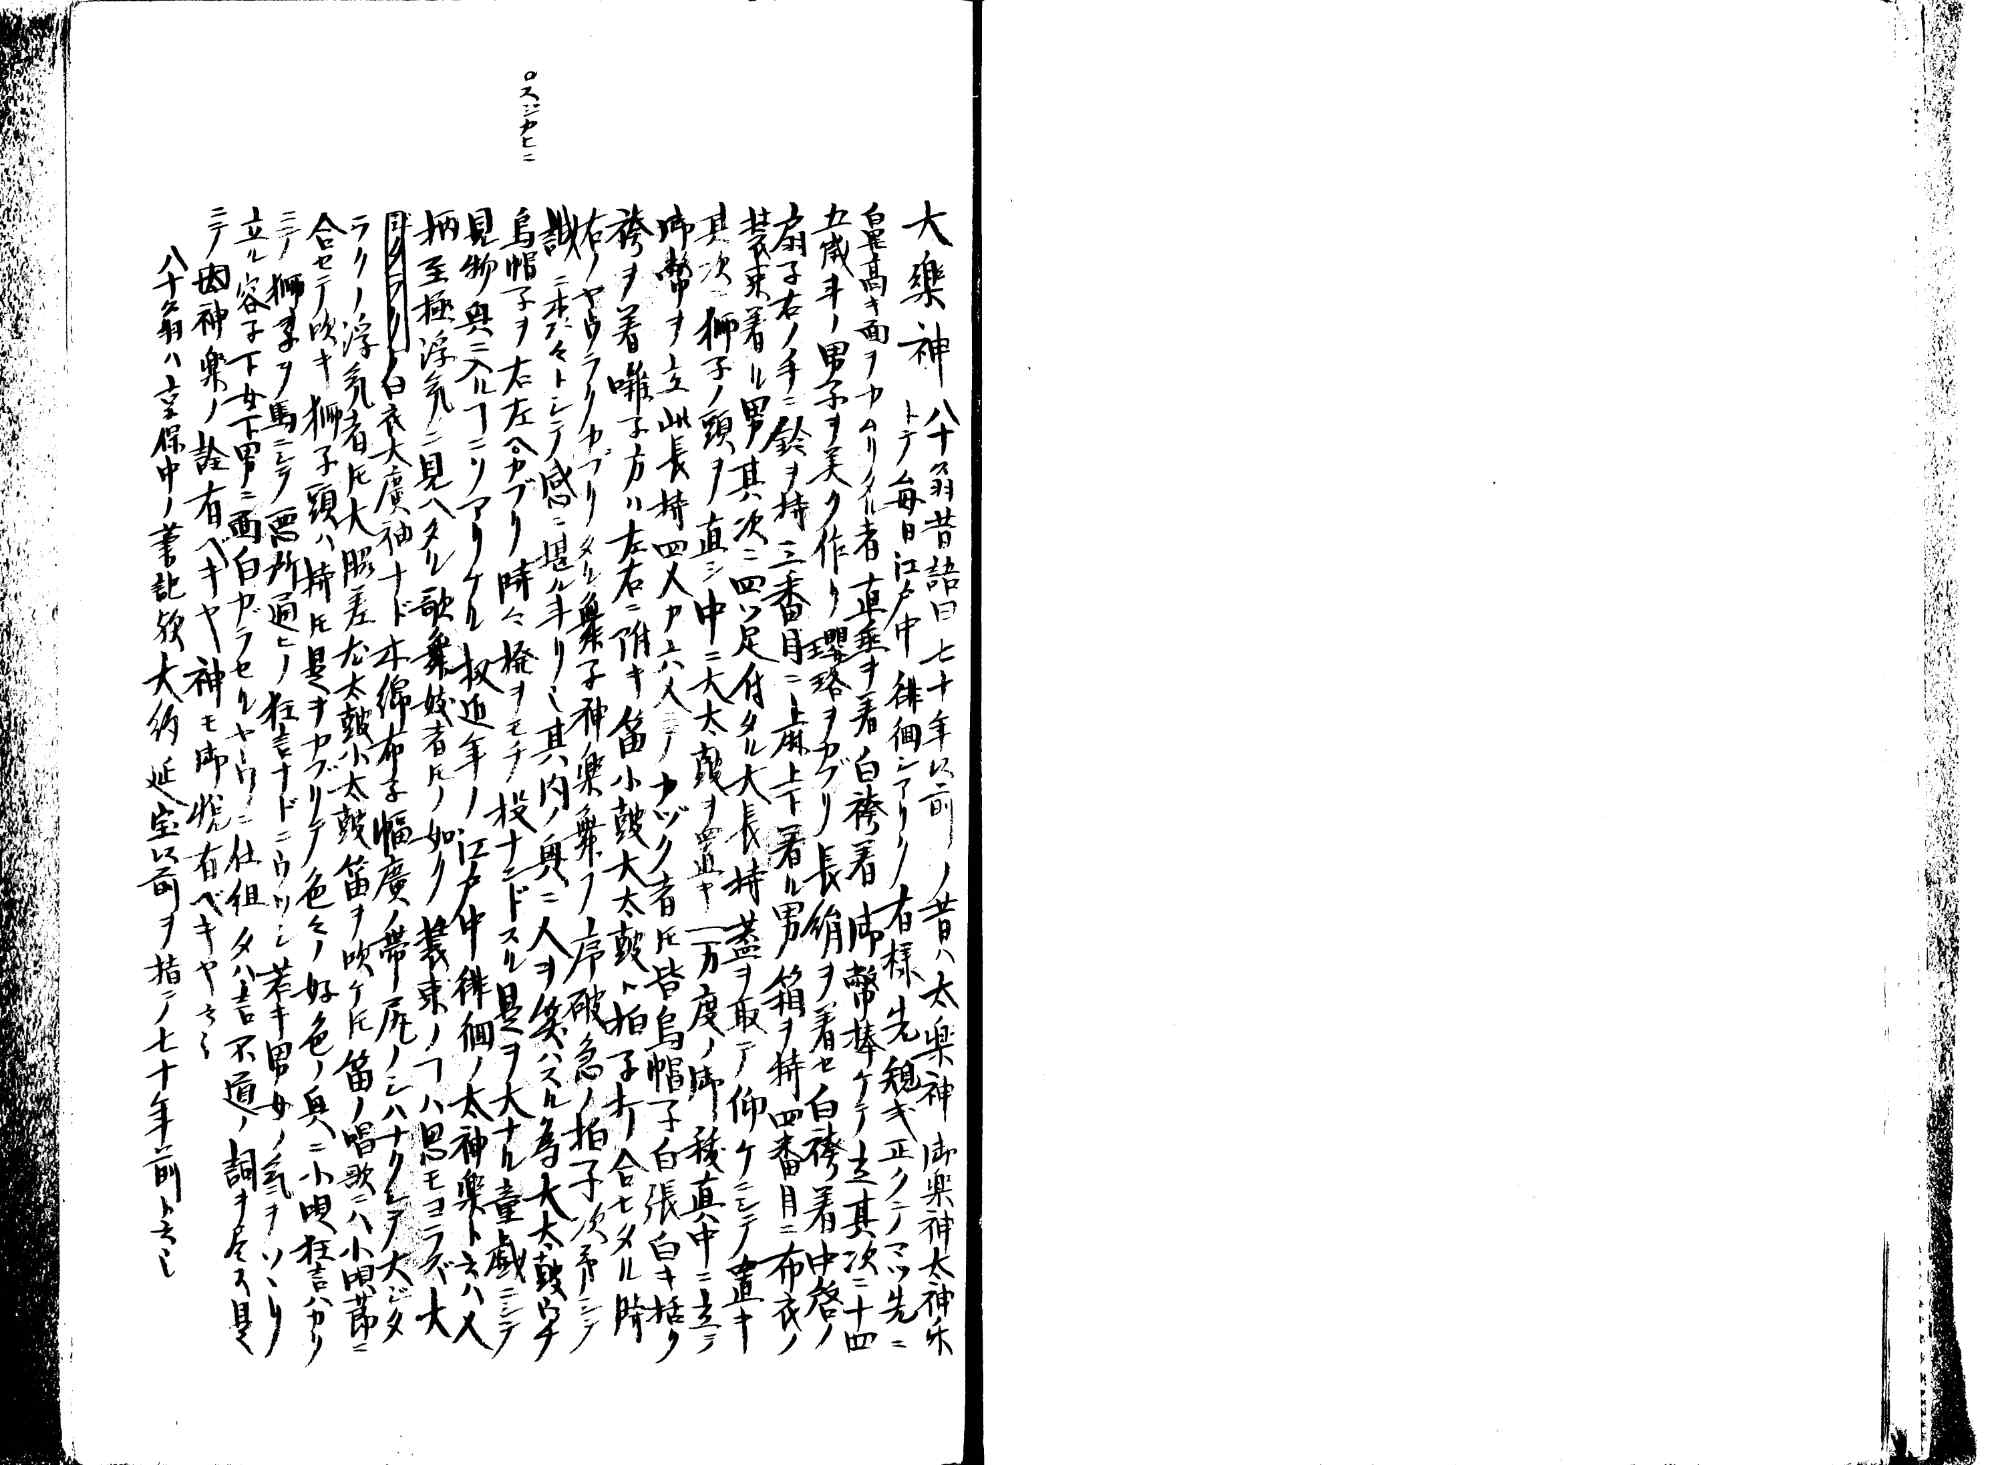 大樂神 八十翁昔語曰七十年以前ノ昔ハ太楽神御楽神太神乐
トテ毎日江戸中徘徊シアリク有様先規式正クシテマツ先ニ
鼻高キ面ヲカムリタル者直垂ヲ着白袴着御幣捧ケテ立其次ニ十四
五歳ヰノ男子ヲ美ク作リ瓔珞ヲカブリ長絹ヲ着セ白袴着中啓ノ
扇子右ノ手ニ鈴ヲ持三番目ニ上麻上下着ル男箱ヲ持四番目ニ布衣ノ
装束着ル男其次ニ四ツ足付タル大長持蓋ヲ取テ仰ケニシテ置キ
其次獅子ノ頭ヲ直シ中ニ大太鼓ヲ置キ一万度ノ御祓真中ニ立テ
御幣ヲ立此長持四人カ六八人ニテカヅク者𪜈皆烏帽子白張白キ括リ
袴ヲ着囃子方ハ左右ニ附キ笛小鼓大太鼓ト拍子ヲ合セタル時
右ノヤウラクカブリタル舞子神楽舞フ序破急ノ拍子次第ニシテ
誠ニ本々トシテ感ニ堪ル事リシ其内ノ興ニ人ヲ笑ハスル為大太鼓ウチ
烏帽子ヲ右左ヘカブリ時々撥ヲモチ投ナンドスル是ヲ大ナル童戯ニシテ
見物興ニ入ルヿニソアリケル扨近年ノ江戸中徘徊ノ太神楽ト云ハ人
柄至極浮気ニ見ハタル歌舞妓者𪜈ノ如ク装束ノヿハ思モヨラズ大
白衣大廣袖ナド木綿布子幅廣ノ帯尻ノシハナクシヲ大ジタ
ラクノ浮気者𪜈大脇差尤太鼓小太鼓笛ヲ吹ケ𪜈笛ノ唱歌ニハ小唄節ニ
合セテ吹キ獅子頭ハ持𪜈是ヲカブリテ色々ノ好色ノ興ニ小唄狂言ハカリ
ニテ獅子ヲ馬ニシテ悪所通ヒノ狂言ナドニウツシ若キ男女ノ気ヲソヽリ
立ル容子下女下男ニ面白ガラセルヤウニ仕組タハ言不道ノ詞ヲ尽ス是
ニテ因神楽ノ詮有ベキヤ神モ御悦有ベキヤ云々
八十翁ハ享保中ノ筆記故大約延宝以前ヲ指テ七十年前ト云シ
○スジカヒニ